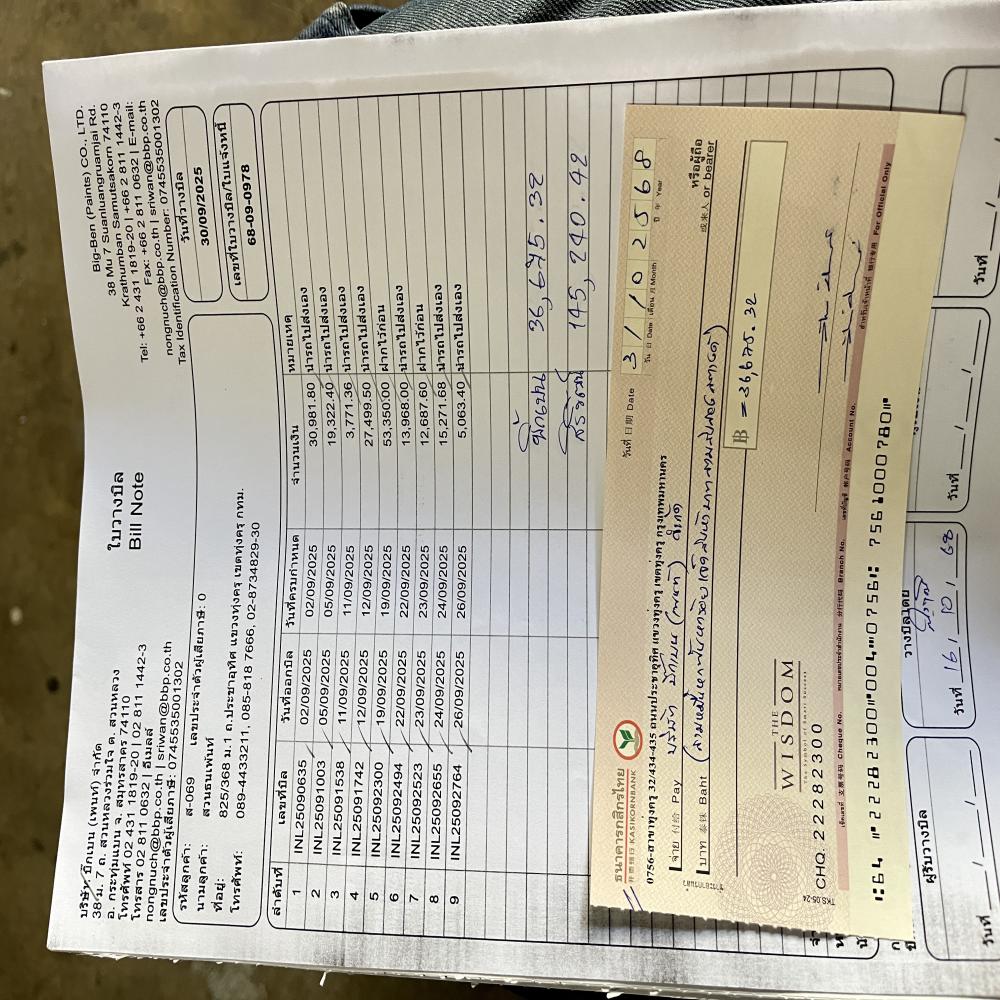 บริษัท บิ๊กเบน (เพนท์) จำกัด
38 ม. 7 ถ. สวนหลวงร่วมใจ ต. สวนหลวง
อ. กระทุ่มแบน จ. สมุทรสาคร 74110
โทรศัพท์ 02 431 1819-20 | 02 811 1442-3
โทรสาร 02 811 0632 | อีเมลล์
nongnuch@bbp.co.th | sriwan@bbp.co.th
เลขประจำตัวผู้เสียภาษี: 0745535001302
ใบวางบิล
Bill Note
Big-Ben (Paints) CO., LTD.
38 Mu 7 Suanluangruamjai Rd.
Krathumban Samutsakorn 74110
Tel: +66 2 431 1819-20 | +66 2 811 1442-3
Fax: +66 2 811 0632 | E-mail:
nongnuch@bbp.co.th | sriwan@bbp.co.th
Tax Identification Number: 0745535001302
รหัสลูกค้า: ส-069 เลขประจำตัวผู้เสียภาษี: 0
นามลูกค้า: สวนธนเพ้นท์
ที่อยู่: 825/368 ม.1 ถ.ประชาอุทิศ แขวงทุ่งครุ เขตทุ่งครุ กทม.
โทรศัพท์: 089-4433211, 085-818 7666, 02-8734829-30
วันที่วางบิล
30/09/2025
เลขที่ใบวางบิล/ใบแจ้งหนี้
68-09-0978
ลำดับที่ เลขที่บิล วันที่ออกบิล วันที่ครบกำหนด จำนวนเงิน หมายเหตุ
1 INL25090635 02/09/2025 02/09/2025 30,981.80 นำรถไปส่งเอง
2 INL25091003 05/09/2025 05/09/2025 19,322.40 นำรถไปส่งเอง
3 INL25091538 11/09/2025 11/09/2025 3,771.36 นำรถไปส่งเอง
4 INL25091742 12/09/2025 12/09/2025 27,499.50 นำรถไปส่งเอง
5 INL25092300 19/09/2025 19/09/2025 53,350.00 ฝากไว้ก่อน
6 INL25092494 22/09/2025 22/09/2025 13,968.00 นำรถไปส่งเอง
7 INL25092523 23/09/2025 23/09/2025 12,687.60 ฝากไว้ก่อน
8 INL25092655 24/09/2025 24/09/2025 15,271.68 นำรถไปส่งเอง
9 INL25092764 26/09/2025 26/09/2025 5,063.40 นำรถไปส่งเอง
36,675.32
145,240.42
ธนาคารกสิกรไทย
开泰银行 KASIKORNBANK
0756-สาขาทุ่งครุ 32/434-435 ถนนประชาอุทิศ แขวงทุ่งครุ เขตทุ่งครุ กรุงเทพมหานคร
วันที่ 日期 Date 31/10/2568
วัน 日 Date เดือน 月 Month ปี 年 Year
จ่าย 付给 Pay บริษัท บิ๊กเบน (เพนท์) จำกัด
หรือผู้ถือ
或来人 or bearer
บาท 泰铢 Baht (สามหมื่นหกพันหกร้อยเจ็ดสิบห้าบาทสามสิบสองสตางค์)
฿ =36,675.32
THE
WISDOM
The Symbol of Smart Success
CHQ. 22282300
TKS 05-24
เช็คเลขที่ 支票号码 Cheque No. Branch No. เลขที่บัญชี 帐户号码 Account No. สำหรับเจ้าหน้าที่ 银行专用 For Official Only
64 22282300 004 0756 7561000780
ผู้รับวางบิล
วันที่ / /
วางบิลโดย
วันที่ 16/10/68
วันที่ / /
วันที่ /